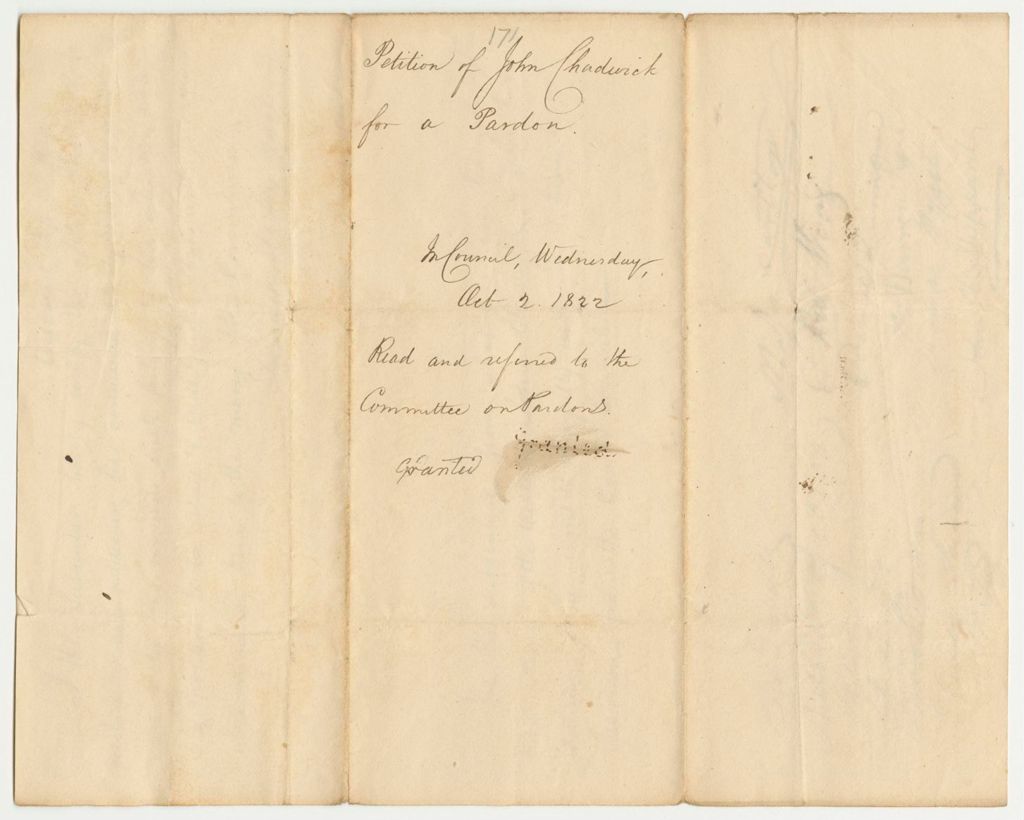 171
Petition of John Chadwick
for a Pardon.
In Council, Wednesday,
Oct 2. 1822
Read and referred to the
Committee on Pardons.
Granted.
Granted